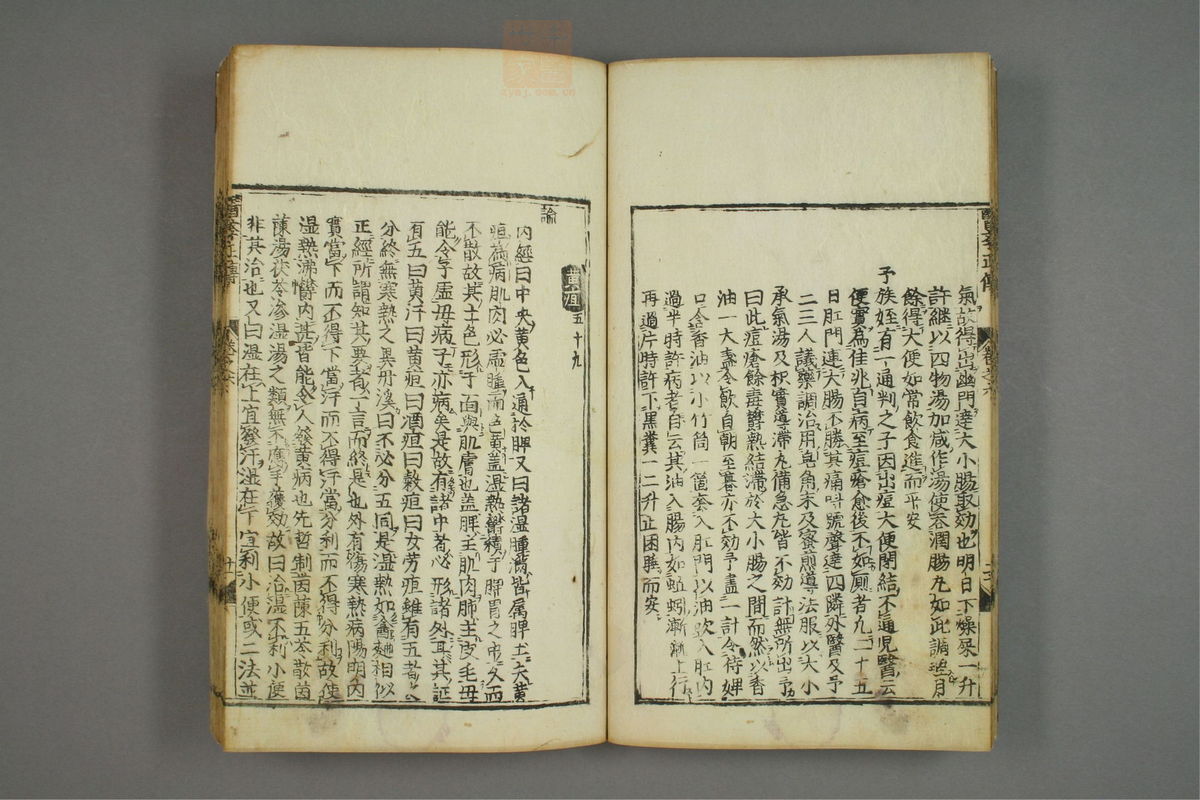 氣故得出幽門達大小腸取効也明日下燥屎一升
許繼以四物湯加减作湯使吞潤腸丸如此調理月
餘得大便如常飲食進而平安
予族姪有一通判之子因出痘大便閉結不通兒醫云
便實為佳兆自病至痘瘡愈後不如厠者凡二十五
日肛門連大腸不勝其痛呌號聲達四隣外醫及予
二三人議藥調治用皂角末及蜜煎導法服以大小
承氣湯及枳實導滯丸備急丸皆不効計無所出予
曰此痘瘡餘毒欝熱結滯於大小腸之間而然以香
油一大盞令飲自朝至暮亦不効予畫一計令侍婢
口含香油以小竹筒一箇套入肛門以油吹入肛内
過半時許病者自云其油入腸内如蚯蚓漸漸上行
再過片時許下黑糞一二升止困睡而安
黄疸五十九
論
内經曰中央黄色入通於脾又曰諸濕腫滿皆屬脾土夫黄
疸為病肌肉必虛腫而色黄盖濕熱欝積于脾胃之中久而
不散故其土色形于面與肌膚也盖脾主肌肉肺主皮毛母
能令子虛母病子亦病矣是故有諸中者必形諸外耳其証
有五曰黄汗曰黄疸曰酒疸曰穀疸曰女勞疸雖有五者之
分終無寒熱之異丹溪曰不必分五同是濕熱如盦麯相似
正經所謂知其要者一言而終是也外有傷寒熱病陽明内
實當下而不得下當汗而不得汗當分利而不得分利故使
濕熱沸欝内甚皆能令人發黄病也先哲制茵蔯五苓散茵
蔯湯茯苓滲濕湯之類無不應手獲効故曰治濕不利小便
非其治也又曰濕在上宜發汗濕在下宜利小便或二法並
醫學正傳
卷之六
醫學正傳
卷之六